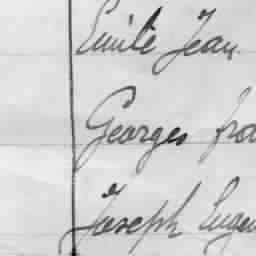 Emile Jean
Georges fra
Joseph Eugen